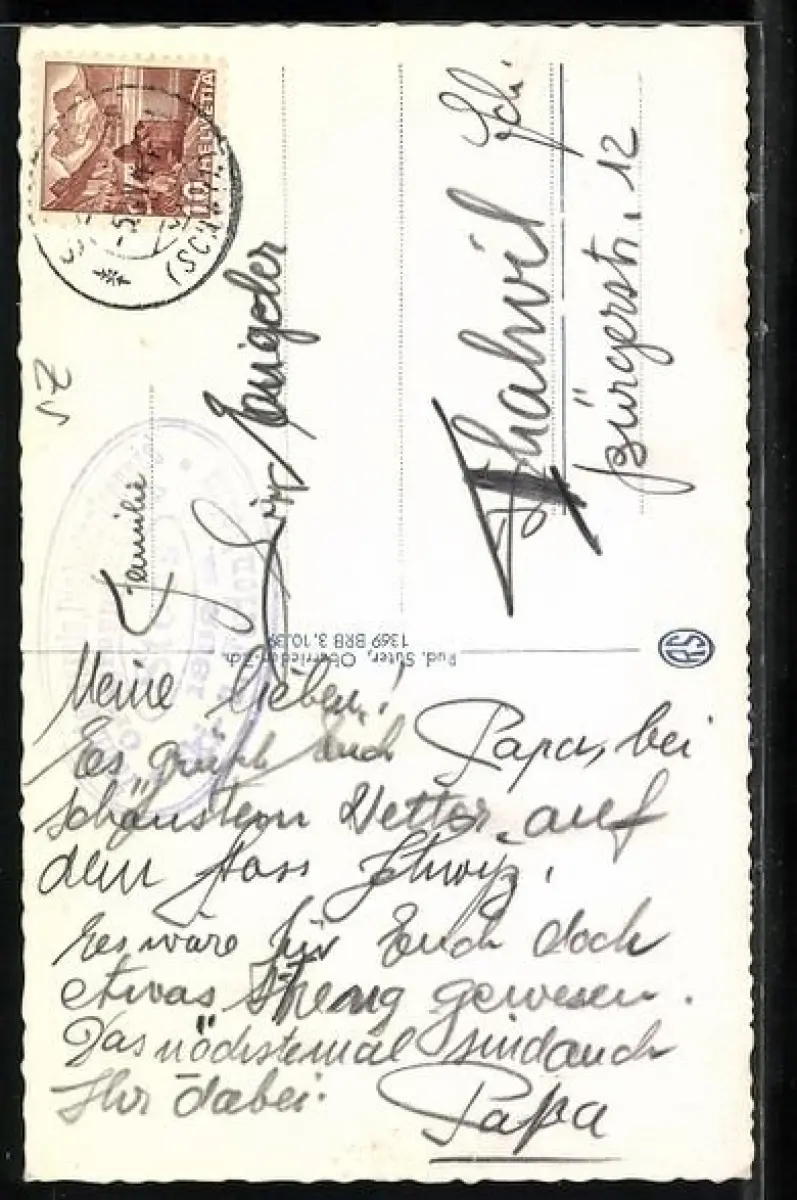 HELVETIA
10
Familie
Thalwil Zch.
bürgerstr. 12
Rud. Suter, Oberrieden-Zch.
1369 BRB 3.10.39
RS
Meine Lieben!
Es grüßt Euch Papa, bei
schönstem Wetter, auf
dem Schwyz.
Es wäre für Euch doch
etwas streng gewesen.
Das nächstemal sind auch
Ihr dabei.
Papa